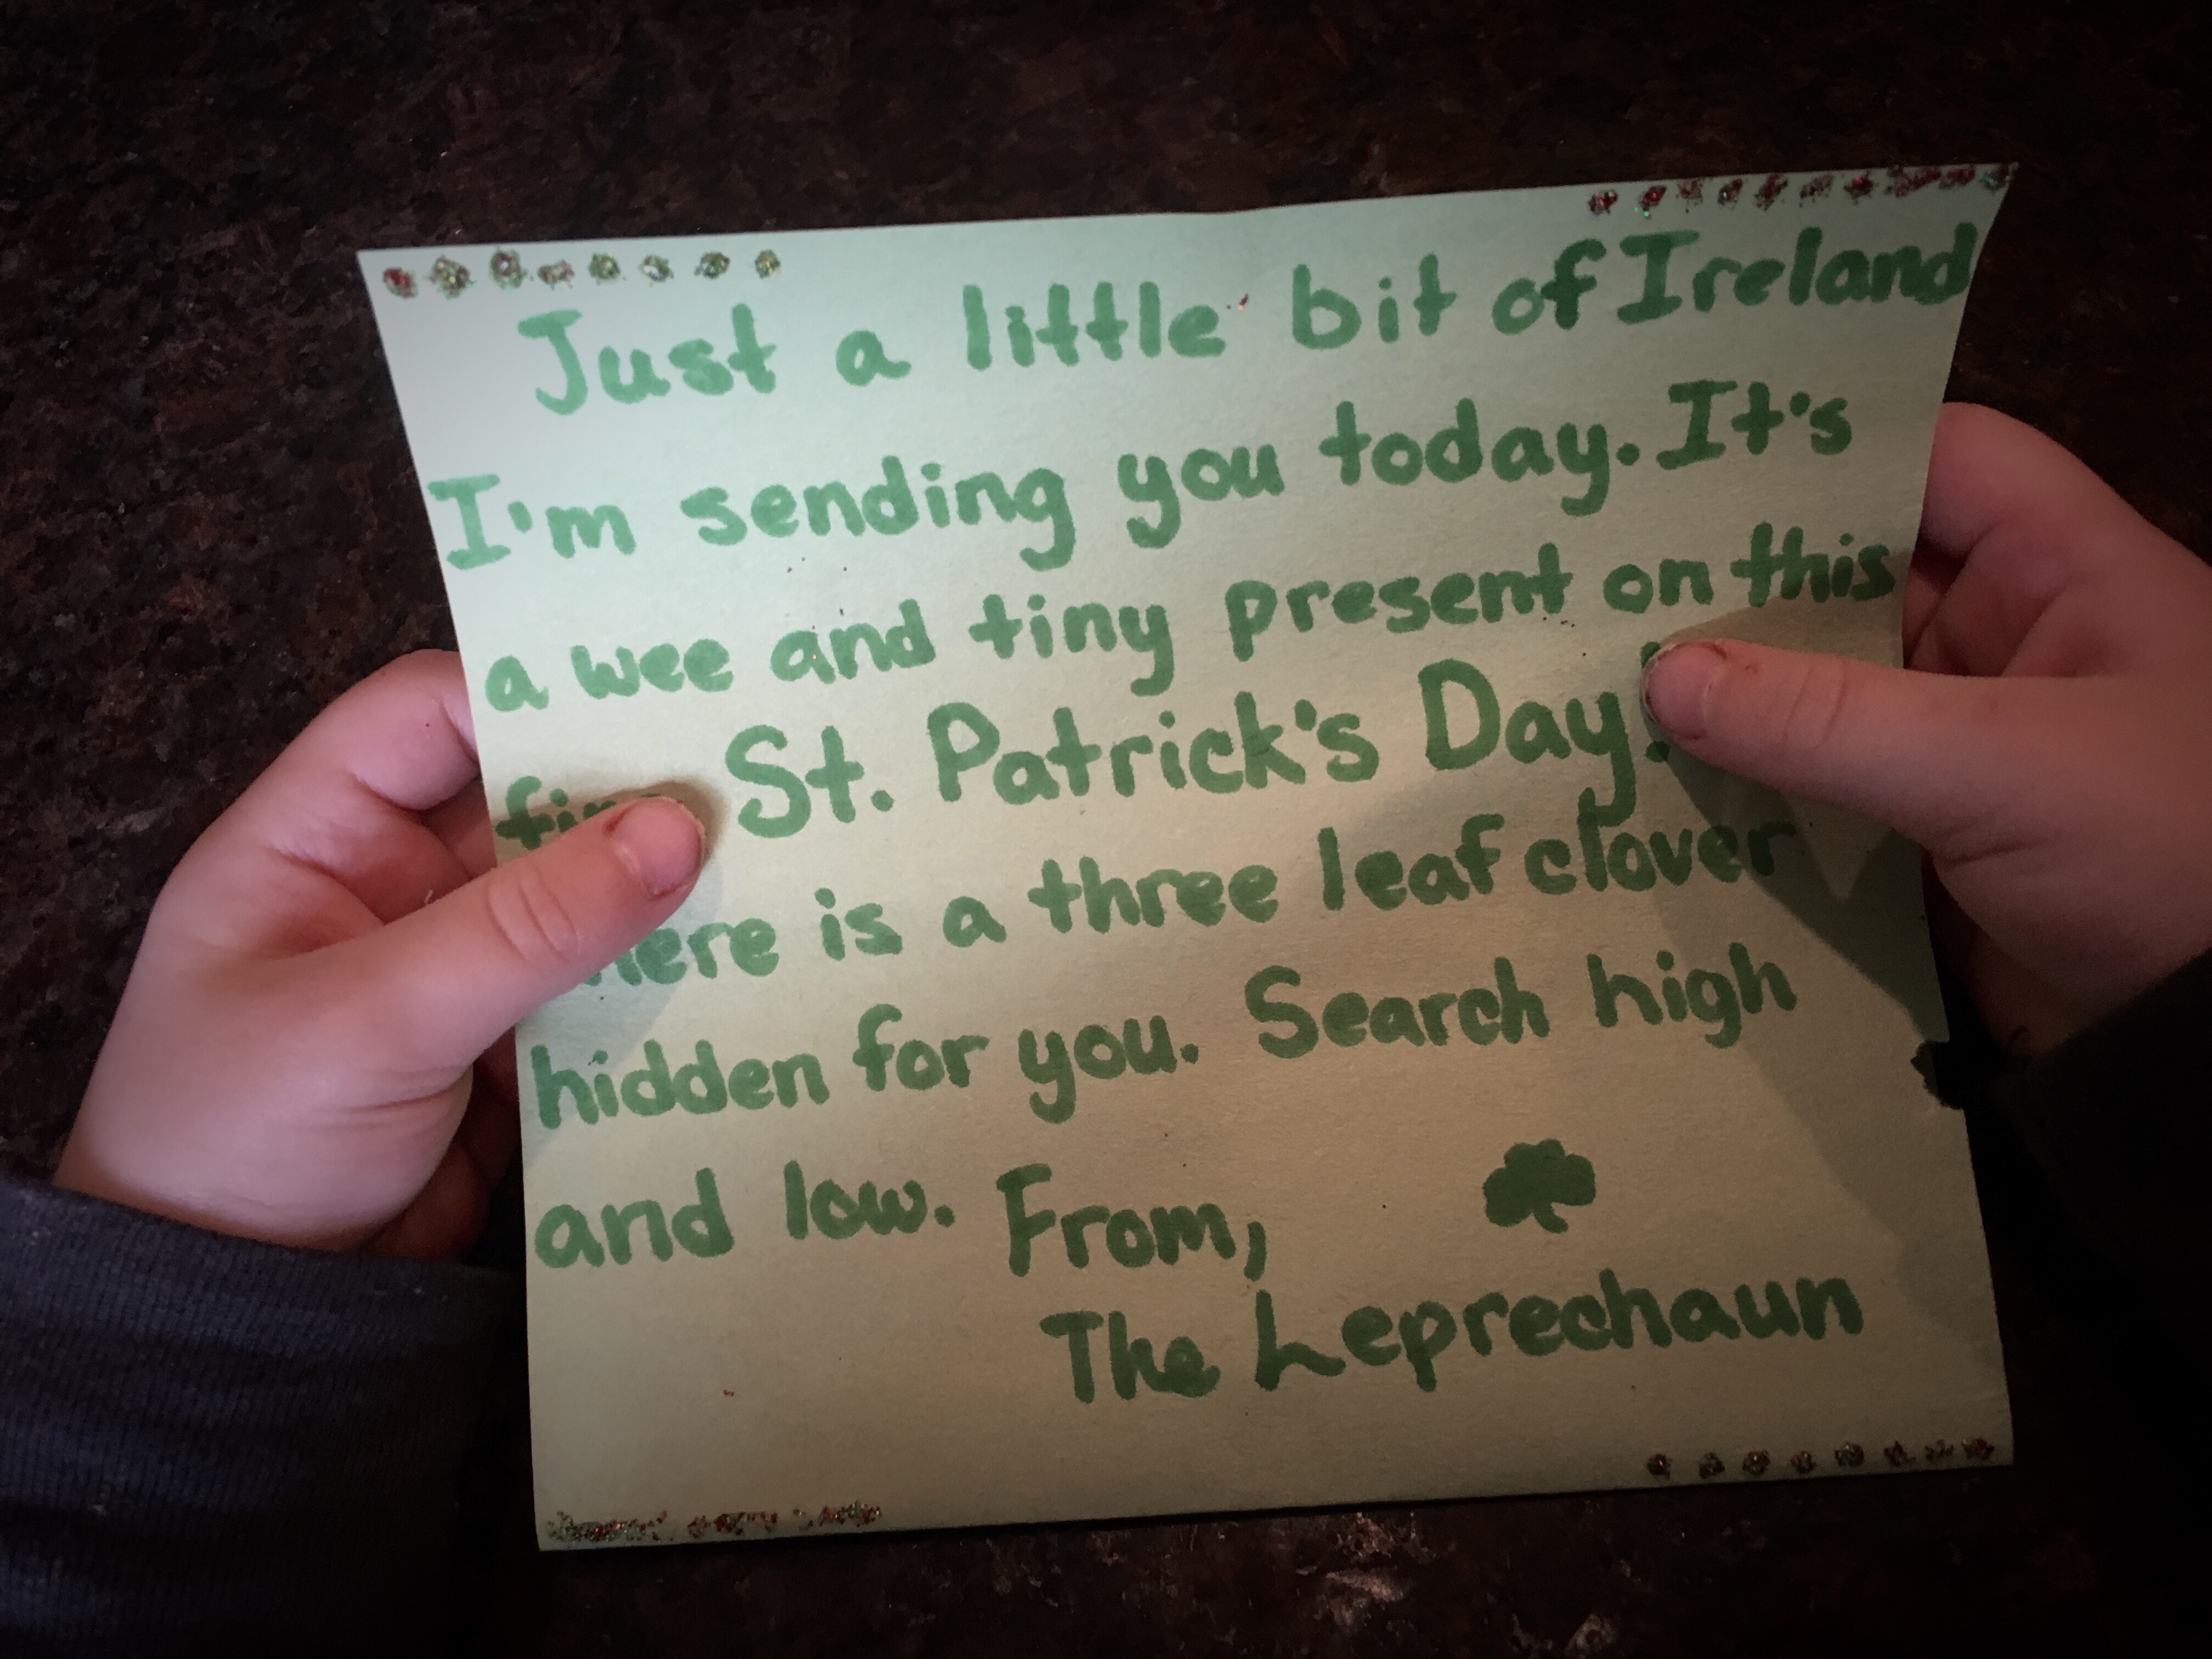 Just a little bit of Ireland
I'm sending you today. It's
a wee and tiny present on this
St. Patrick's Day!
is a three leaf clover
hidden for you. Search high
and low. From,
The Leprechaun